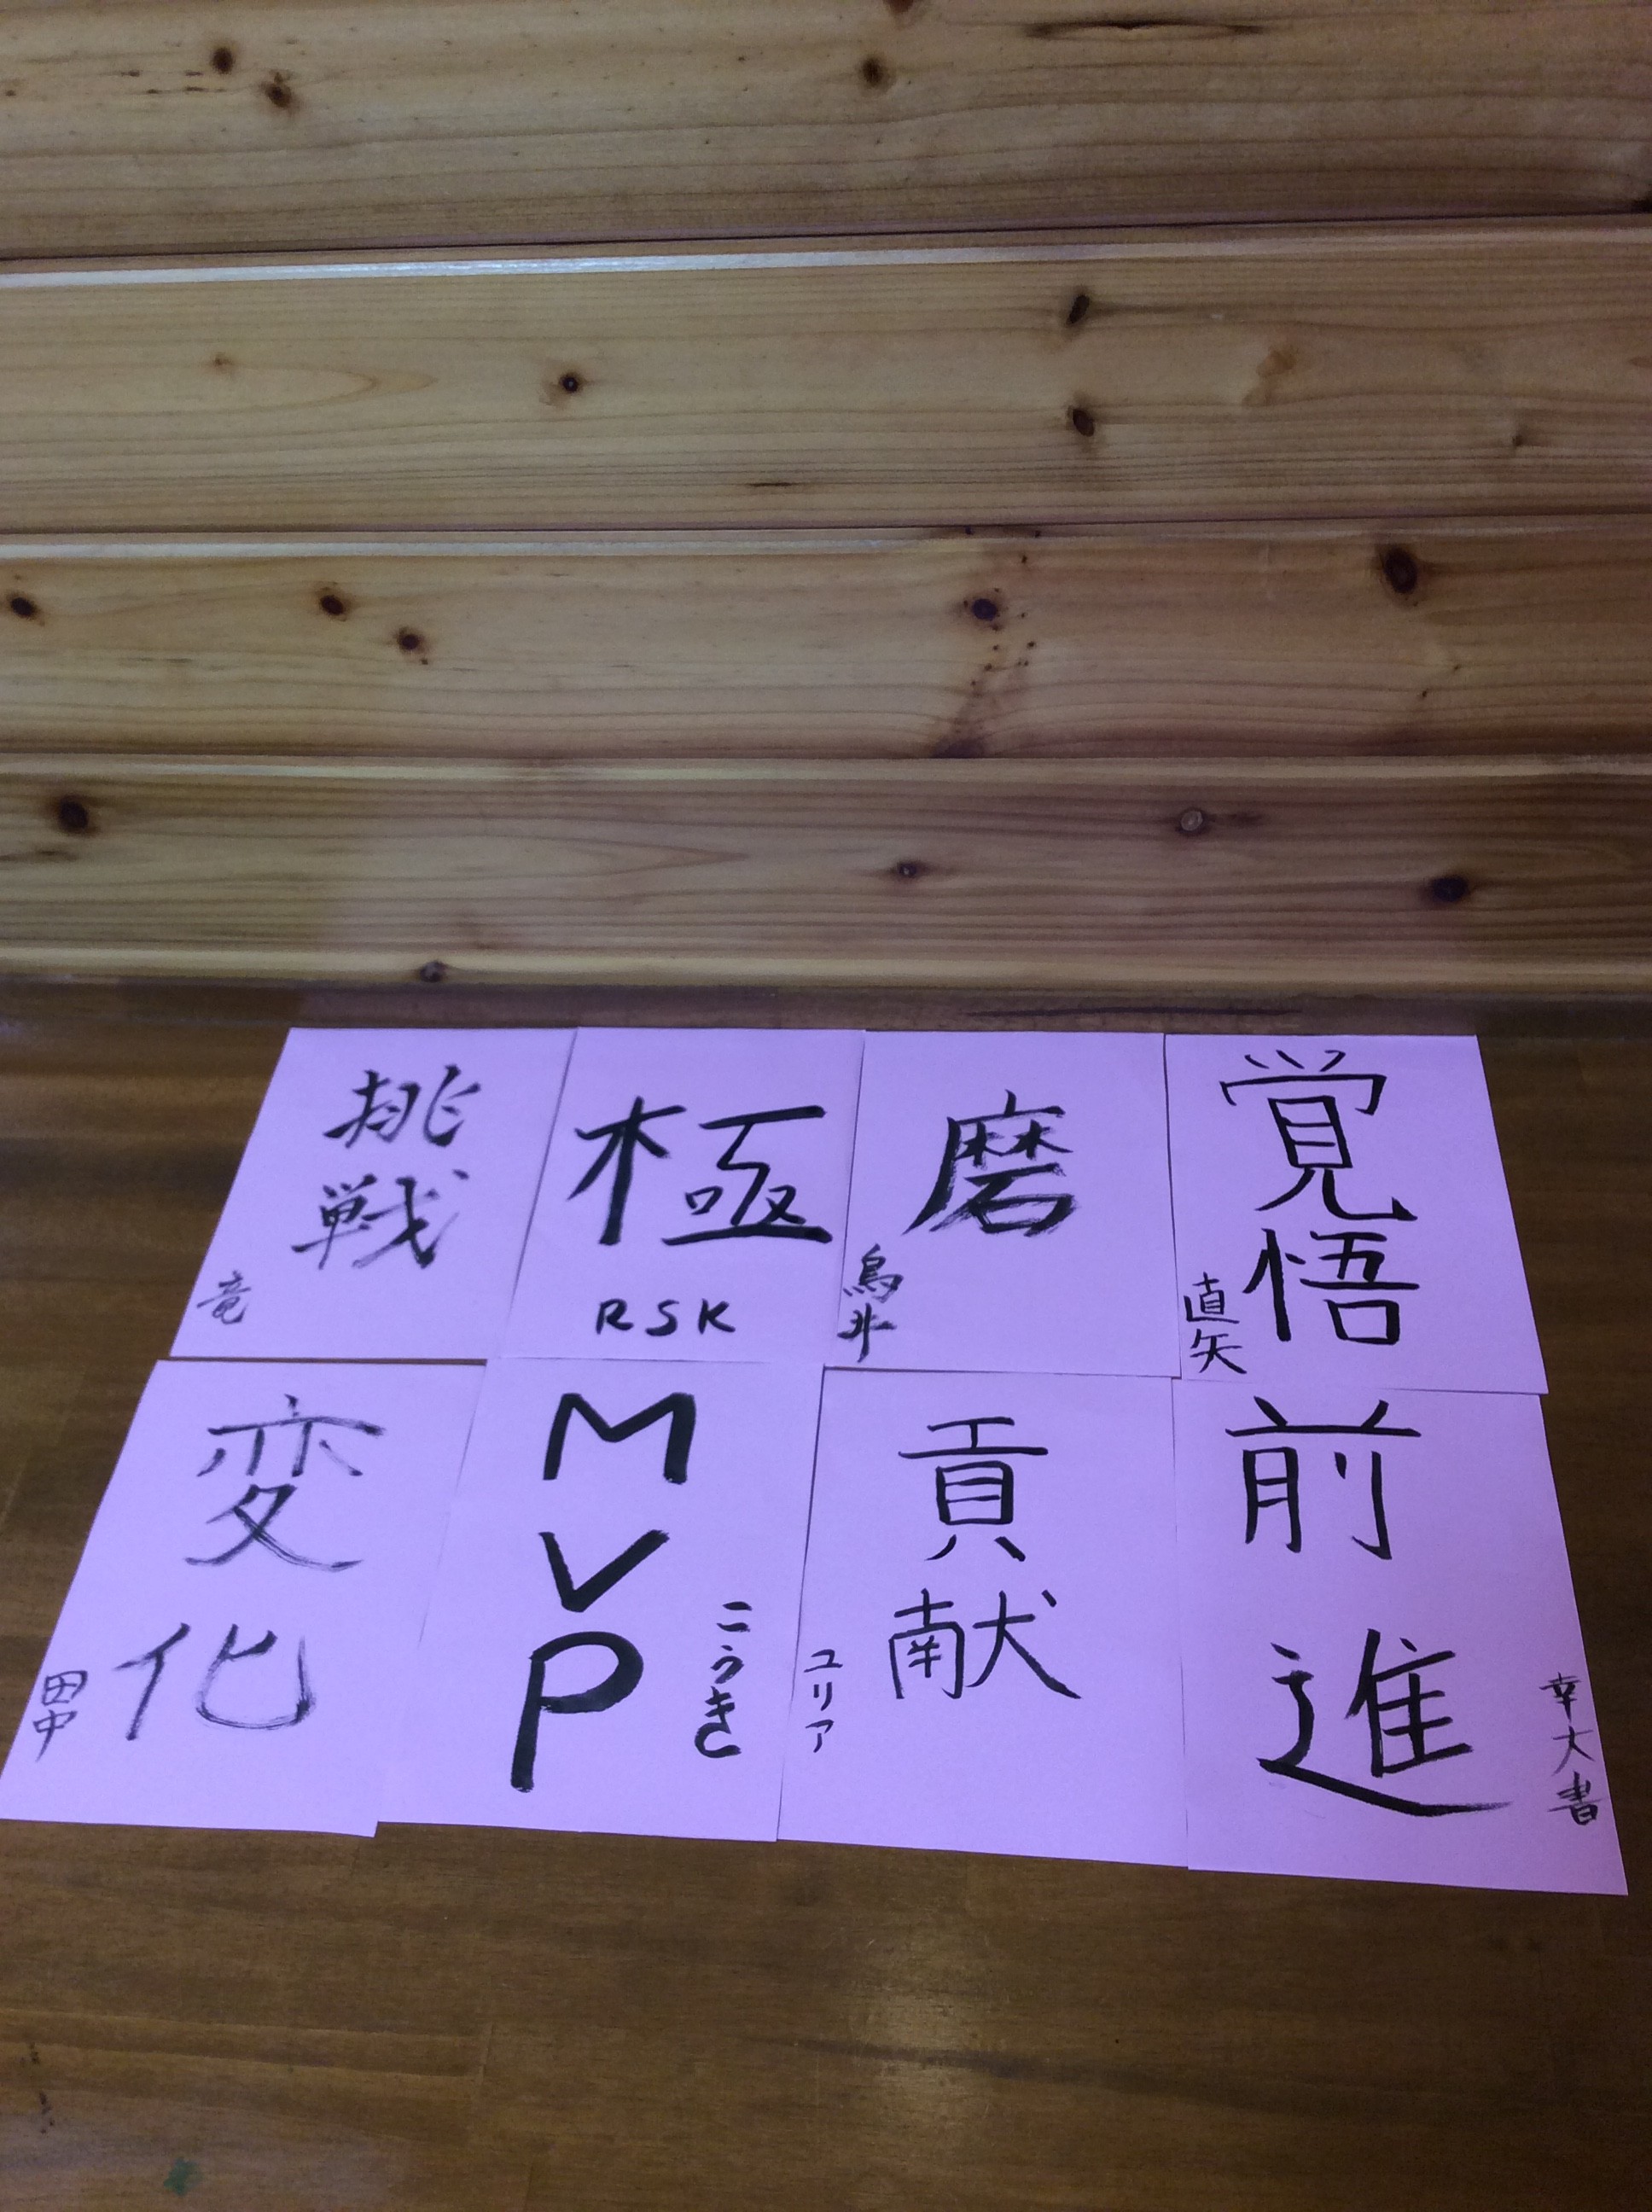 挑戦
竜
極
RSK
磨
鳥斗
覚悟
直矢
変化
田中
MVP
こうき
貢献
ユリア
前進
幸大書